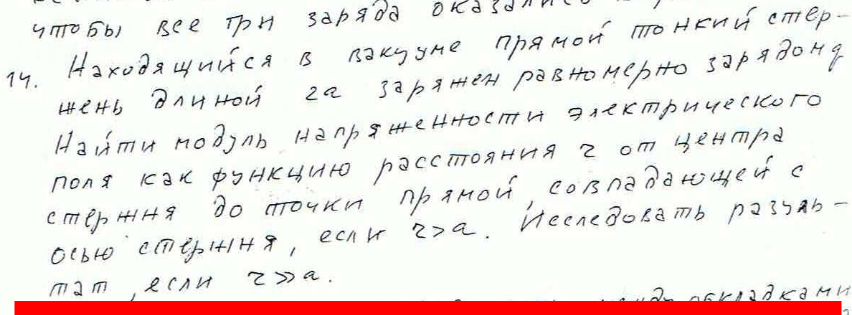 чтобы все три заряда оказались
14. Находящийся в вакууме прямой тонкий стер-
жень длиной 2a заряжен равномерно зарядом q
Найти модуль напряженности электрического
поля как функцию расстояния r от центра
стержня до точки прямой, совпадающей с
осью стержня, если r>a. Исследовать резуль-
тат, если r≫a.
обкладками